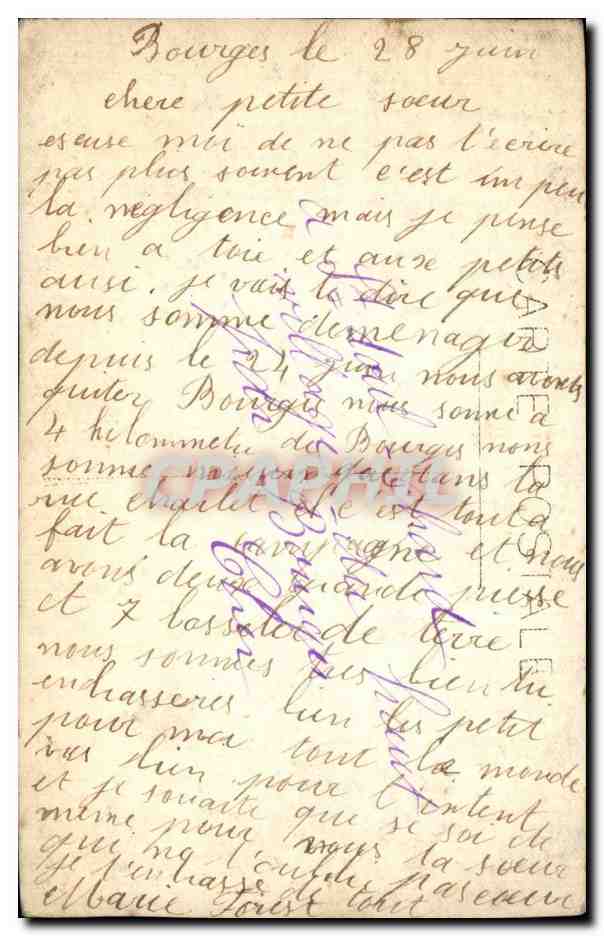 Bourges le 28 juin
chere petite sœur
escuse moi de ne pas t'ecrire
pas plus souvent c'est un peu
la négligence mais je pense
bien a toie et aux petits
ausi. je vais te dire que
nous somme demenager
depuis le 24 juin nous avons
quiter Bourges nous some a
4 kilommetre de Bourges nous
somme dans la
rue et c'est tout a
fait la campagne et nous
avons deux grande piesse
et 7 de terre
nous sommes tres bien tu
enbrasseras bien les petit
pour moi tout le monde
vas bien pour l'intent
et je souaite que se soi de
meme pour vous ta sœur
qui ne t'oubli pas
je t'enbrasse de tout cœur
Marie Forest
CARTE POSTALE
Bourges
Cher
CPAPHIL